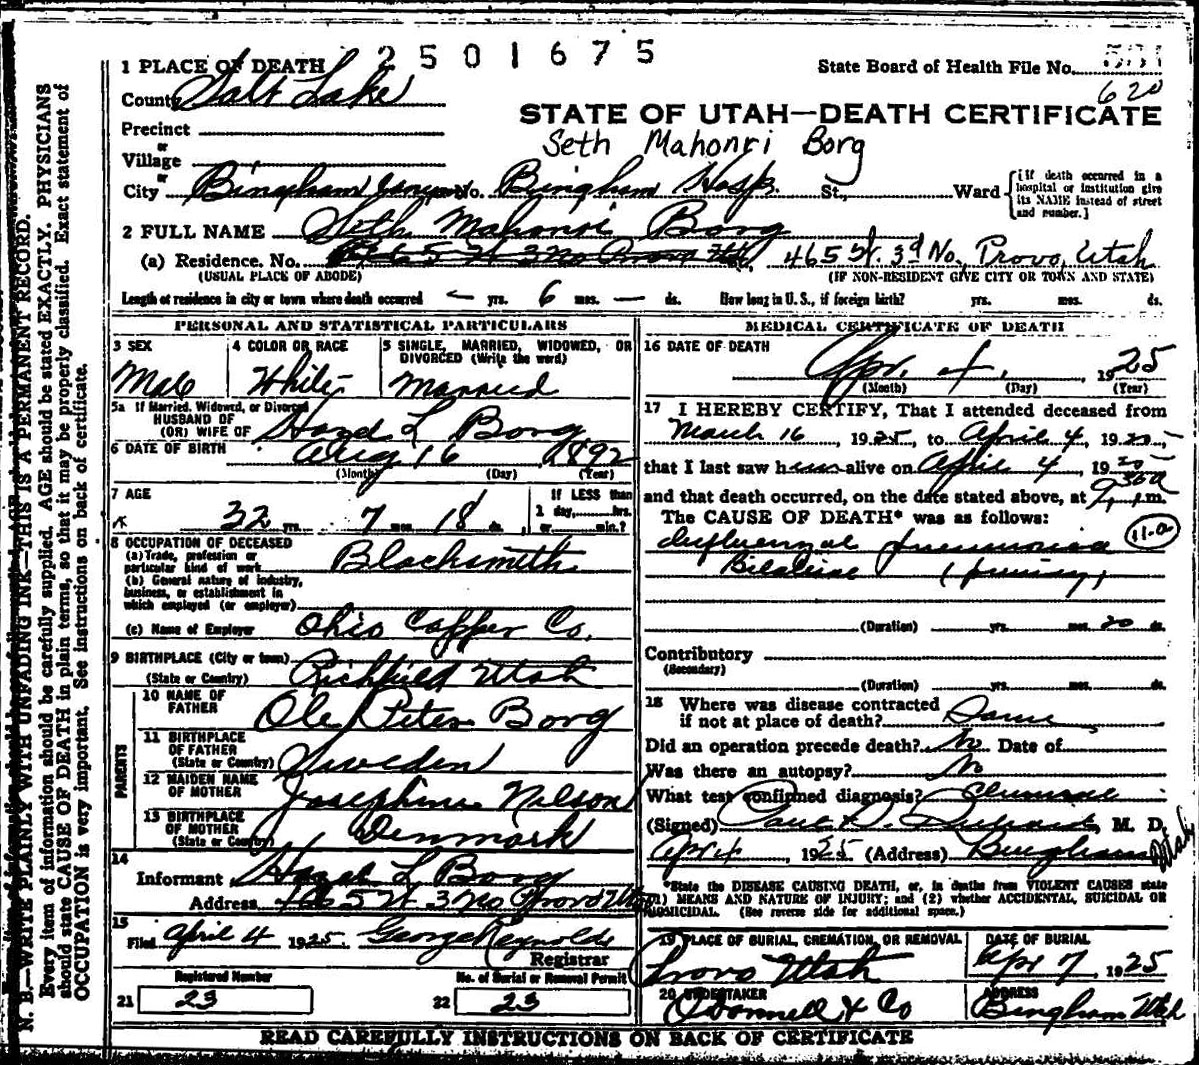 2501675
1 PLACE OF DEATH
State Board of Health File No.
620
County Salt Lake
STATE OF UTAH—DEATH CERTIFICATE
Precinct
or
Seth Mahonri Borg
Village
or
City Bingham Canyon No. Bingham Hosp. St., Ward
(If death occurred in a hospital or institution give its NAME instead of street and number.]
2 FULL NAME Seth Mahonri Borg
(a) Residence. No. 465 W. 3d No., Provo, Utah
(USUAL PLACE OF ABODE) (IF NON-RESIDENT GIVE CITY OR TOWN AND STATE)
Length of residence in city or town where death occurred — yrs. 6 mos. — ds. How long in U. S., if foreign birth? yrs. mos. ds.
PERSONAL AND STATISTICAL PARTICULARS
3 SEX 4 COLOR OR RACE 5 SINGLE, MARRIED, WIDOWED, OR
DIVORCED (Write the word)
Male White Married
5a If Married, Widowed, or Divorced
HUSBAND OF
(OR) WIFE OF Hazel L Borg
6 DATE OF BIRTH Aug 16 1892
(Month) (Day) (Year)
7 AGE If LESS than
32 yrs. 7 mos. 18 ds. 1 day, hrs.
or min.?
8 OCCUPATION OF DECEASED
(a) Trade, profession or
particular kind of work Blacksmith
(b) General nature of industry,
business, or establishment in
which employed (or employer)
(c) Name of Employer Ohio Copper Co.
9 BIRTHPLACE (City or town)
(State or Country) Richfield Utah
PARENTS
10 NAME OF
FATHER Ole Peter Borg
11 BIRTHPLACE
OF FATHER
(State or Country) Sweden
12 MAIDEN NAME
OF MOTHER Josephine Nilson
13 BIRTHPLACE
OF MOTHER
(State or Country) Denmark
14
Informant Hazel L Borg
Address 465 W 3 No Provo Utah
15
Filed April 4 1925. George Reynolds
Registrar
Registered Number No. of Burial or Removal Permit
21 23 22 23
MEDICAL CERTIFICATE OF DEATH
16 DATE OF DEATH
Apr. 4, 1925
(Month) (Day) (Year)
17 I HEREBY CERTIFY, That I attended deceased from
March 16, 1925, to April 4, 1925,
that I last saw him alive on April 4, 1925
and that death occurred, on the date stated above, at 9 30 a.m.
The CAUSE OF DEATH* was as follows:
Influenzal pneumonia 11-a
(Duration) yrs. mos. 20 ds.
Contributory
(Secondary)
(Duration) yrs. mos. ds.
18 Where was disease contracted
if not at place of death? Same
Did an operation precede death? No Date of
Was there an autopsy? No
What test confirmed diagnosis? Clinical
(Signed) Paul S. M. D.
Apr 4, 1925 (Address) Bingham Utah
*State the DISEASE CAUSING DEATH, or, in deaths from VIOLENT CAUSES state
(1) MEANS AND NATURE OF INJURY; and (2) whether ACCIDENTAL, SUICIDAL OR
HOMICIDAL. (See reverse side for additional space.)
19 PLACE OF BURIAL, CREMATION, OR REMOVAL DATE OF BURIAL
Provo Utah Apr 7 1925
20 UNDERTAKER ADDRESS
O'Donnell & Co Bingham Utah
READ CAREFULLY INSTRUCTIONS ON BACK OF CERTIFICATE
N. B.—WRITE PLAINLY WITH UNFADING INK—THIS IS A PERMANENT RECORD.
Every item of information should be carefully supplied. AGE should be stated EXACTLY. PHYSICIANS
should state CAUSE OF DEATH in plain terms, so that it may be properly classified. Exact statement of
OCCUPATION is very important. See instructions on back of certificate.